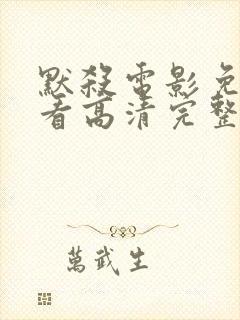 默殺電影免
看高清完整
萬武生